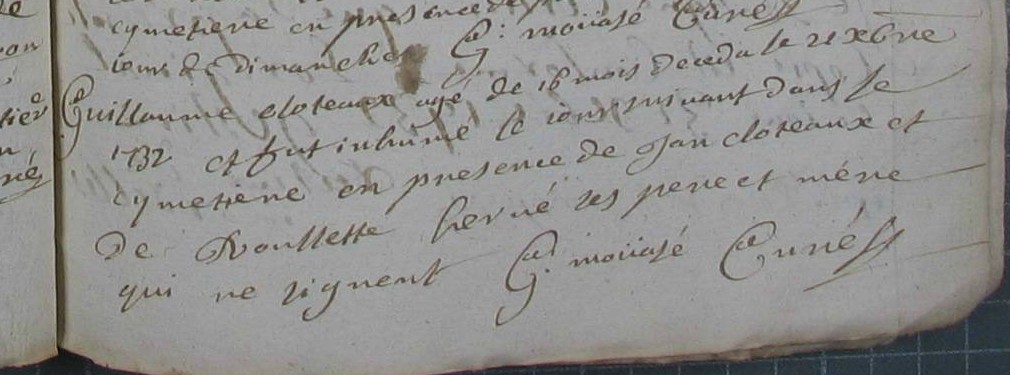 cymetiere en presence de
iour de dimanche G: moüasé Curé
Guillaume cloteaux agé de 16 mois deceda le 21 xbre
1732 et fut inhumé le iour suivant dans le
cymetiere en presence de Jan cloteaux et
de Roullette hervé ses pere et mére
qui ne signent G: moüasé Curé